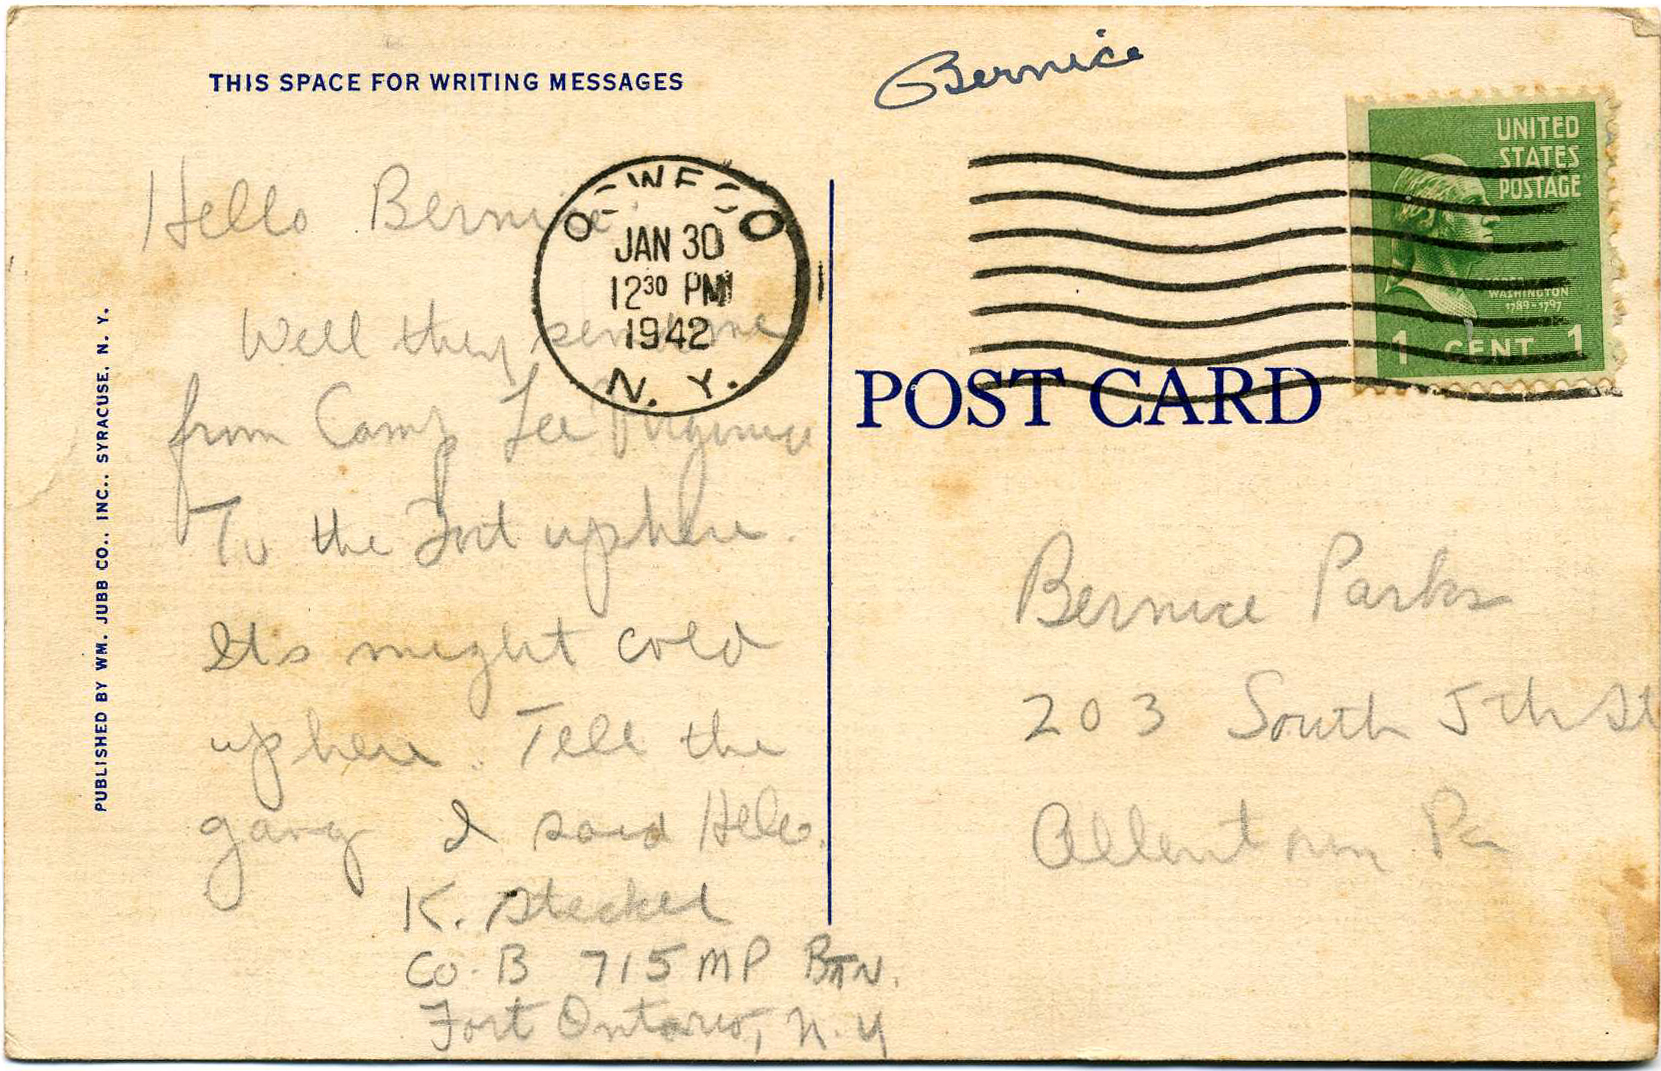 THIS SPACE FOR WRITING MESSAGES
Bernice
Hello Bernice
Well they send me
from Camp Lee Virginia
To the Fort up here.
Its might cold
up here. Tell the
gang I said Hello.
K. Steckel
Co. B 715 MP BTN.
Fort Ontario, N.Y
PUBLISHED BY WM. JUBB CO., INC., SYRACUSE, N. Y.
JAN 30
12³⁰ PM
1942
N. Y.
UNITED
STATES
POSTAGE
WASHINGTON
1789-1797
1 CENT 1
POST CARD
Bernice Parks
203 South 5th St
Allentown Pa